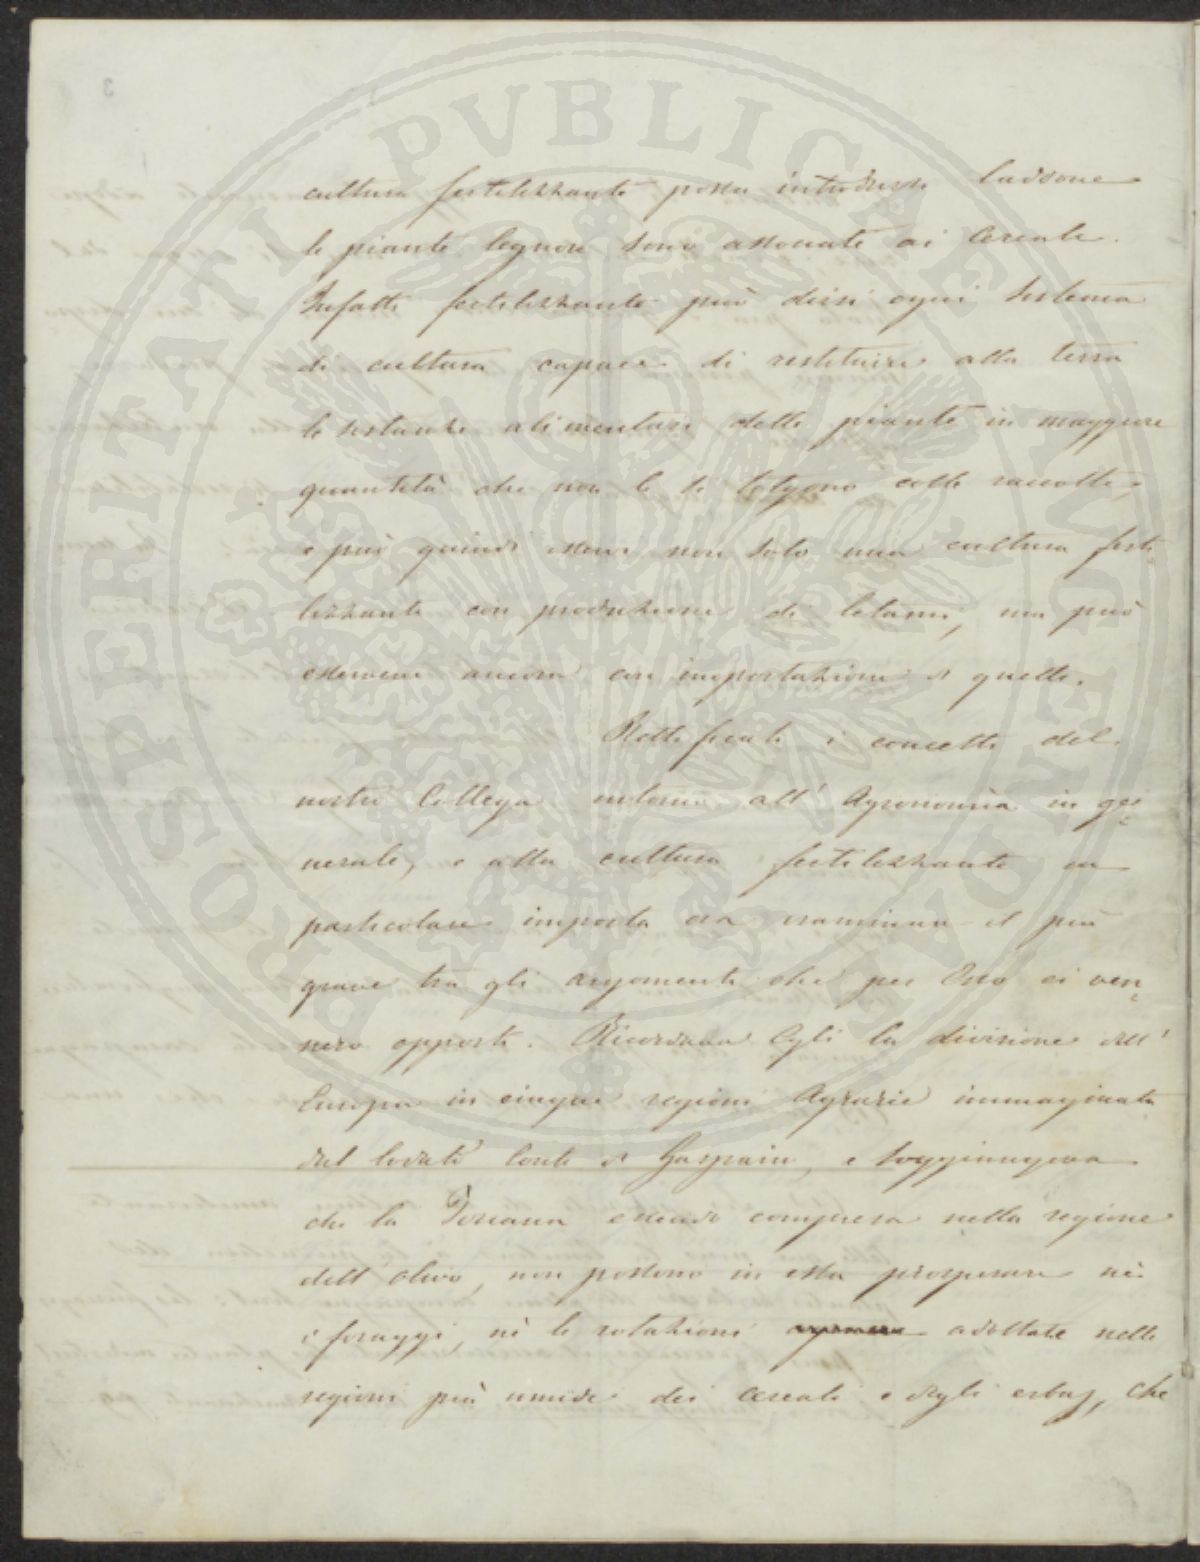 cultura fertilizzante possa introdursi laddove
le piante legnose sono associate ai Cereali.
Infatti fertilizzante può dirsi ogni sistema
di cultura capace di restituire alla terra
le sostanze alimentari delle piante in maggiore
quantità che non le si tolgono colle raccolte,
e può quindi esservi non solo una cultura ferti
lizzante con produzione di letami, ma può
esservene ancora con importazione di quelli.
Rettificati i concetti del
nostro Collega intorno all' Agronomia in ge=
nerale, e alla cultura fertilizzante in
particolare importa ora esaminare il più
grave tra gli argomenti che per Esso ci ven=
nero opposti. Ricordava Egli la divisione dell'
Europa in cinque regioni Agrarie immaginata
dal lodato Conte di Gasparin, e soggiungeva
che la Toscana essendo compresa nella regione
dell' olivo, non possono in essa prosperare nè
i foraggi, nè le rotazioni adottate nelle
regioni più umide dei cereali e degli erbaj, che
PROSPERITATI PUBLICAE AUGENDAE